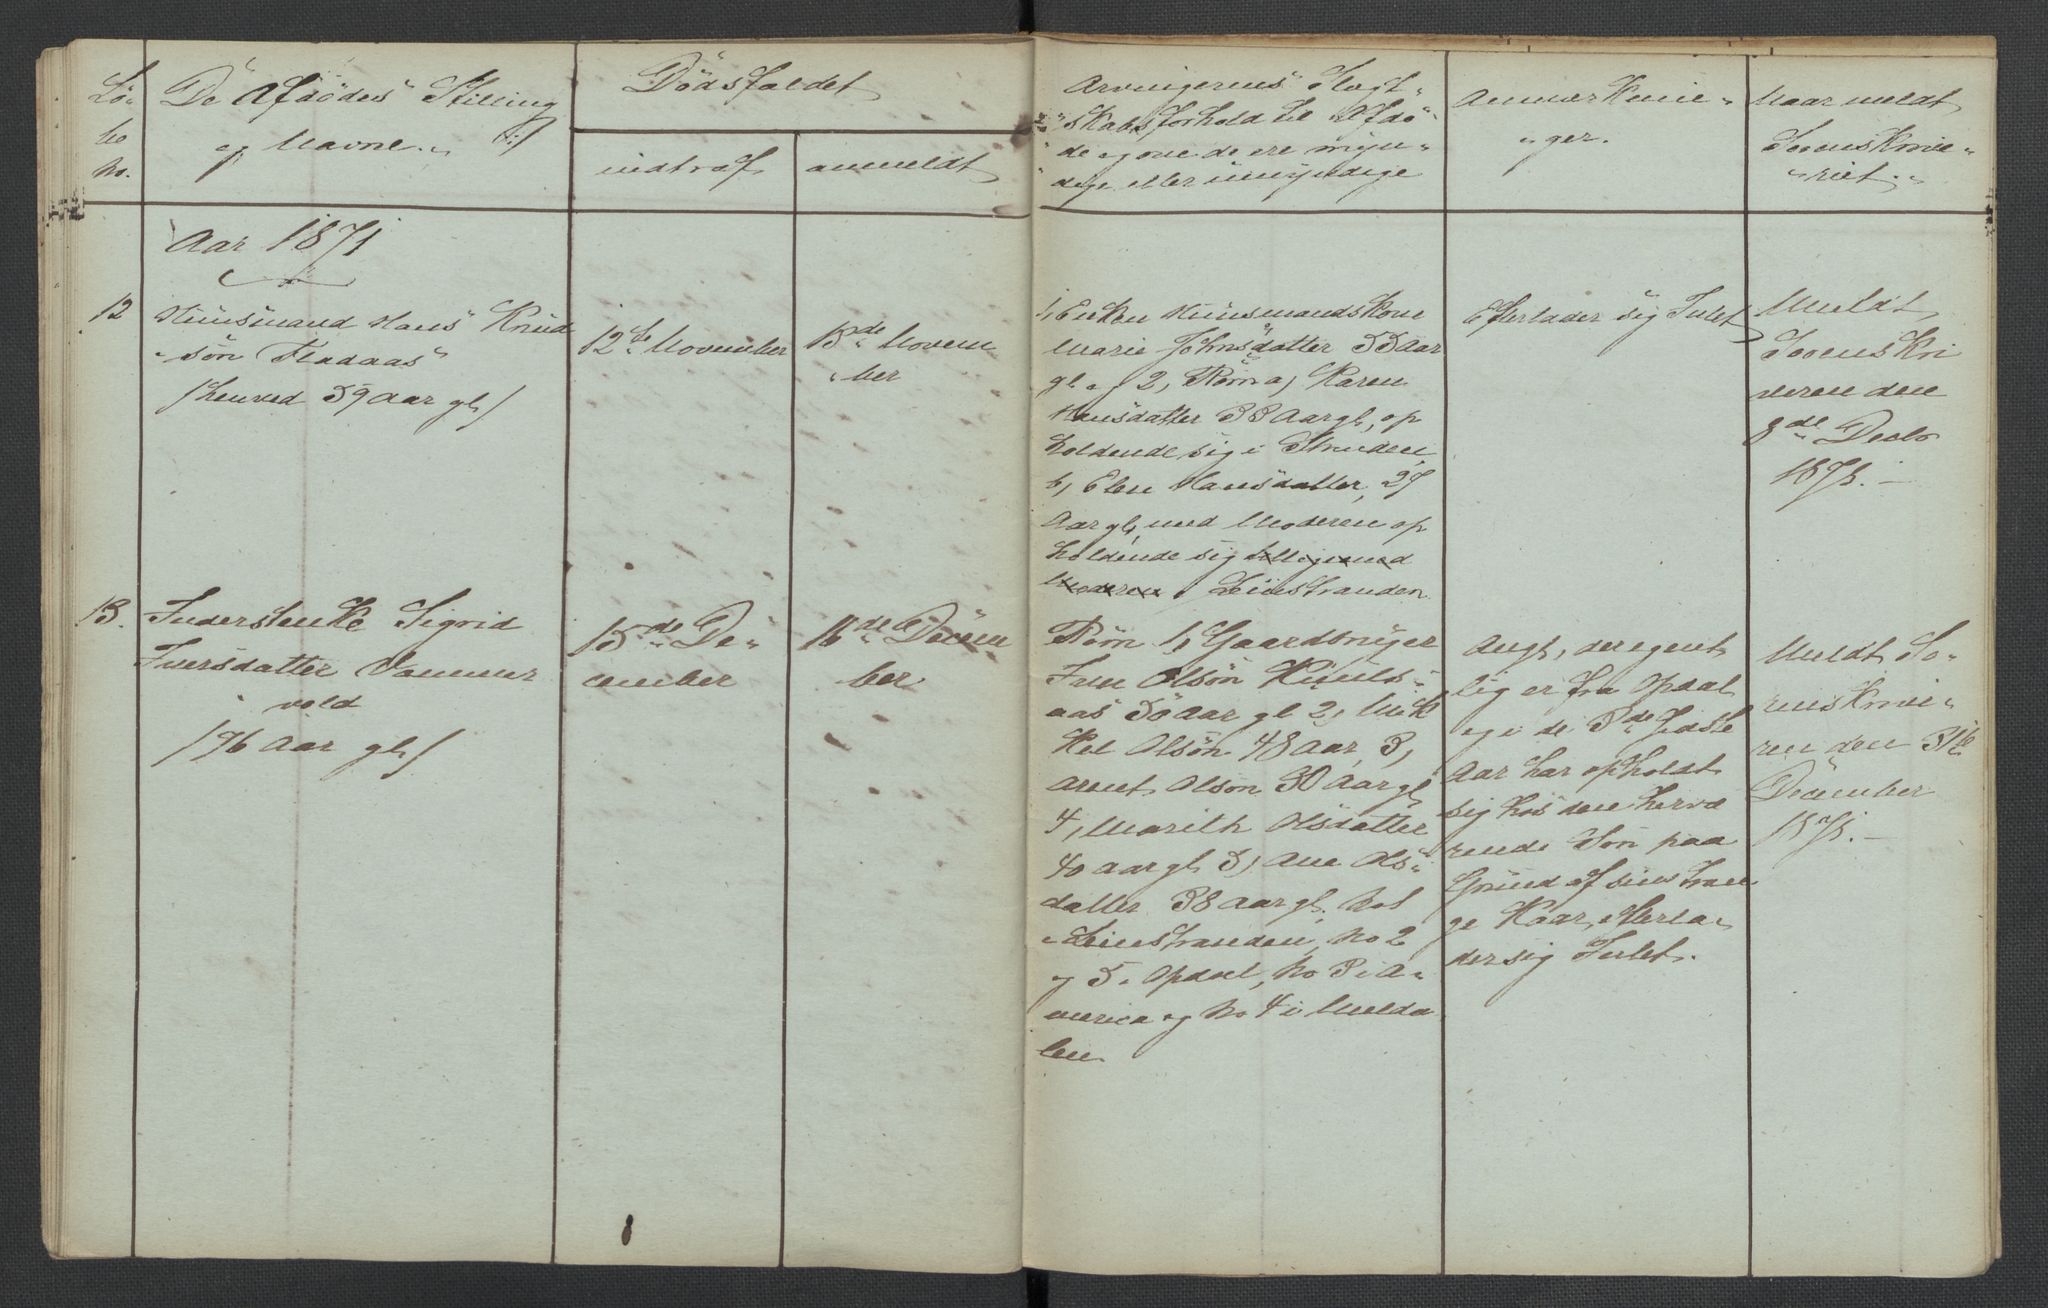 Lö-
be
No.
De Afdödes Stilling
og Navne.
Dödsfaldet
indtraf
anmeldt
Arvingernes Slegt-
skabsforhold til Afdö-
de og om de ere myn-
dige eller umyndige
Anmærknin-
ger.
Naar meldt
Sorenskrive-
riet.
Aar 1871
12
Huusmand Hans Knud
sön Fladaas
/henved 59 Aar gl/
12te November
13de Novem
ber
1, Enken Huusmandskone
Marie Johnsdatter 55 Aar
gl. og 2, Börn a, Karen
Hansdatter 33 Aar gl, op
holdende sig i Stranden
b, Elen Hansdatter, 27
Aar gl, med Moderen op
holdende sig tilligemed
Moderen i Leinstranden
Efterlader sig Intet
Meldt
Sorenskri
veren den
8de Decbr
1871.
13.
Inderstenke Sigrid
Iversdatter Vammer
vold
/76 Aar gl/
15de De-
cember
16de Decem
ber
Börn 1, Gaardbruger
Iver Olsön
aas 50 Aar gl 2, Mik
kel Olsön 48 Aar, 3,
Arnt Olsön 30 Aar gl
4, Marith Olsdatter
40 Aar gl 5, Ane Ols-
datter 38 Aar gl. No 1
i Leinstranden, No 2
og 5 i Opdal, No 3 i A-
merica og No 4 i Melda
len
Angl, der egent
lig er fra Opdal
og i de 3de sidste
Aar har opholdt
sig hos den hervæ
rende Sön paa
Grund af sine tran
ge Kaar, efterla-
der sig Intet.
Meldt So-
renskrive-
ren den 31te
December
1871.